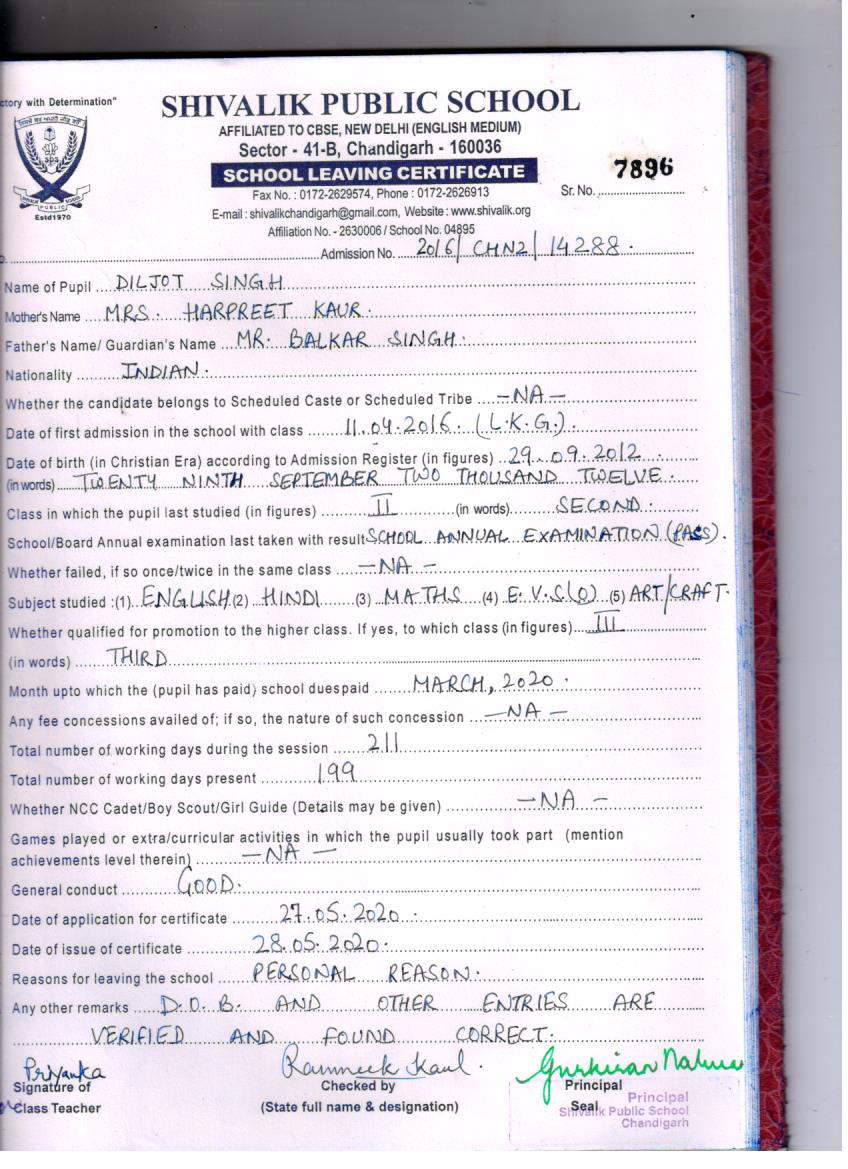 ctory with Determination"
SHIVALIK PUBLIC SCHOOL
AFFILIATED TO CBSE, NEW DELHI (ENGLISH MEDIUM)
Sector - 41-B, Chandigarh - 160036
SCHOOL LEAVING CERTIFICATE
Sr. No. 7896
Fax No. : 0172-2629574, Phone : 0172-2626913
E-mail : shivalikchandigarh@gmail.com, Website : www.shivalik.org
Affiliation No. - 2630006 / School No. 04895
SPS
SHIVALIK PUBLIC SCHOOL
Estd1970
Admission No. 2016/ CHN2/ 14288.
Name of Pupil DILJOT SINGH
Mother's Name MRS. HARPREET KAUR.
Father's Name/ Guardian's Name MR. BALKAR SINGH.
Nationality INDIAN.
Whether the candidate belongs to Scheduled Caste or Scheduled Tribe -NA-
Date of first admission in the school with class 11.04.2016. (L.K.G.).
Date of birth (in Christian Era) according to Admission Register (in figures) 29.09.2012.
(in words) TWENTY NINTH SEPTEMBER TWO THOUSAND TWELVE.
Class in which the pupil last studied (in figures) II (in words) SECOND.
School/Board Annual examination last taken with result SCHOOL ANNUAL EXAMINATION (PASS).
Whether failed, if so once/twice in the same class -NA-
Subject studied :(1) ENGLISH (2) HINDI (3) MATHS (4) E.V.S(O) (5) ART/CRAFT.
Whether qualified for promotion to the higher class. If yes, to which class (in figures) III
(in words) THIRD
Month upto which the (pupil has paid) school duespaid MARCH, 2020.
Any fee concessions availed of; if so, the nature of such concession -NA-
Total number of working days during the session 211
Total number of working days present 199
Whether NCC Cadet/Boy Scout/Girl Guide (Details may be given) -NA-
Games played or extra/curricular activities in which the pupil usually took part (mention
achievements level therein) -NA-
General conduct GOOD.
Date of application for certificate 27.05.2020.
Date of issue of certificate 28.05.2020.
Reasons for leaving the school PERSONAL REASON.
Any other remarks D.O.B. AND OTHER ENTRIES ARE
VERIFIED AND FOUND CORRECT.
Priyanka
Signature of
Class Teacher
Ramneek Kaul.
Checked by
(State full name & designation)
Principal
Seal
Principal
Shivalik Public School
Chandigarh